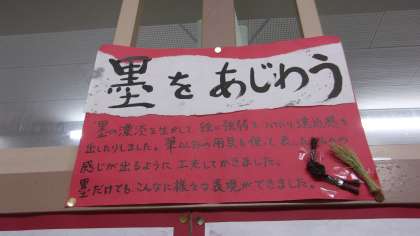 墨をあじわう
墨の濃淡を生かして 絵に強弱をつけたり遠近感を
出したりしました。筆以外の用具も使って
感じが出るように 工夫してかきました。
墨だけでも こんなに様々な表現ができました。